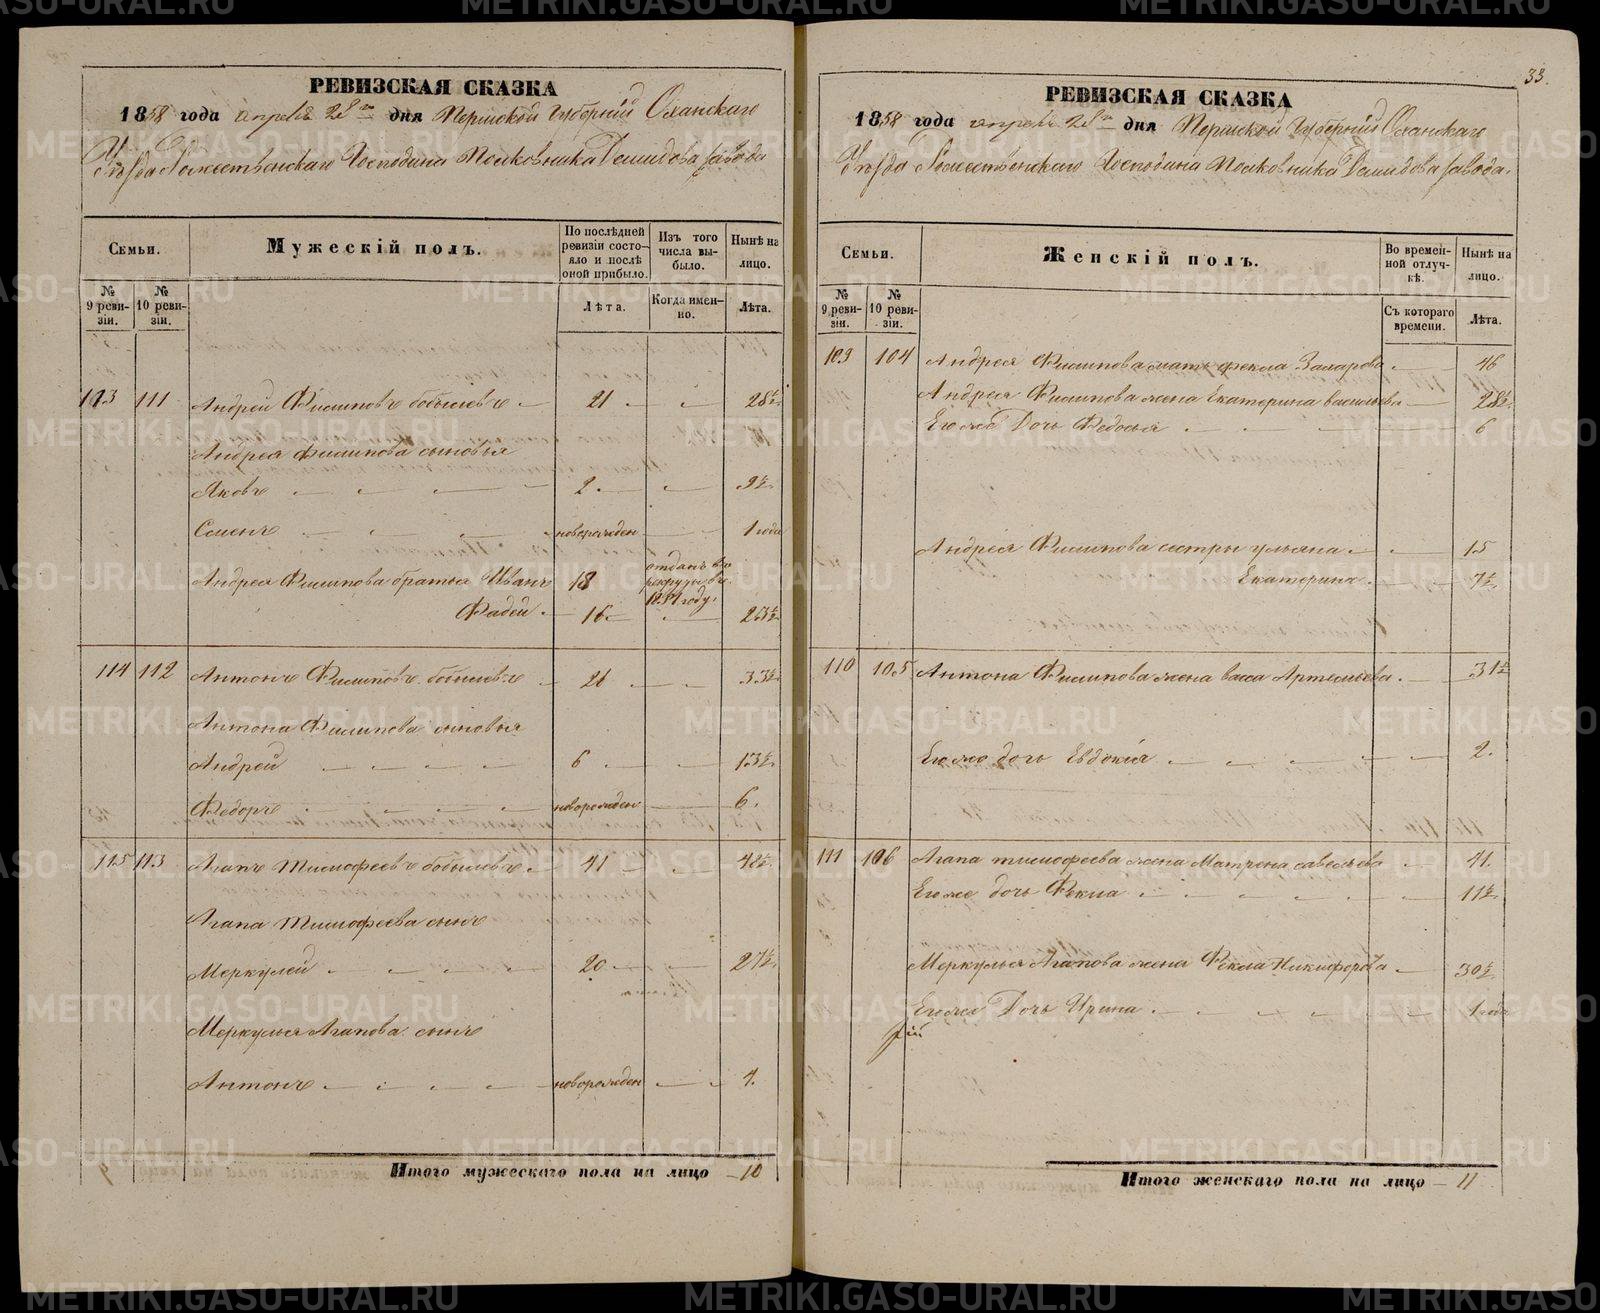 РЕВИЗСКАЯ СКАЗКА
1858 года апреля 28го дня Пермской Губернии Оханскаго
Уѣзда Рожественскаго Господина Полковника Демидова завода
Семьи.
№ 9 ревизіи.
№ 10 ревизіи.
Мужескій полъ.
По послѣдней ревизіи состояло и послѣ оной прибыло.
Лѣта.
Изъ того числа выбыло.
Когда именно.
Нынѣ на лицо.
Лѣта.
113 111 Андрей Филиповъ бобылевъ 21 28½
Андрея Филипова сыновья
Яковъ 2 9½
Семенъ новорожден 1 годъ
Андрея Филипова братья Иванъ 18 отданъ въ рекруты въ 1851 году.
Фадей 16 23½
114 112 Антонъ Филиповъ бобылевъ 26 33½
Антона Филипова сыновья
Андрей 6 13½
Федоръ новорожден 6.
115 113 Агапъ Тимофеевъ бобылевъ 41 48½
Агапа Тимофеева сынъ
Меркулей 20 27½
Меркулья Агапова сынъ
Антонъ новорожден 4.
Итого мужескаго пола на лицо 10
33.
РЕВИЗСКАЯ СКАЗКА
1858 года апреля 28го дня Пермской Губерніи Оханскаго
Уѣзда Рожественскаго Господина Полковника Демидова завода.
Семьи.
№ 9 ревизіи.
№ 10 ревизіи.
Женскій полъ.
Во временной отлучкѣ.
Съ котораго времени.
Нынѣ на лицо.
Лѣта.
109 104 Андрея Филипова мать Фекла Захарова 46
Андрея Филипова жена Екатерина васильева 28½
Его же Дочь Федосья 6
Андрея Филипова сестры ульяна 15
Екатерина 7½
110 105 Антона Филипова жена васса Артемьева 31½
Его же дочь Евдокія 2.
111 106 Агапа тимофеева жена Матрена савельева 41.
Его же дочь Фекла 11½
Меркулья Агапова жена Фекла Никифорова 30½
Его же Дочь Ирина 1 годъ
Итого женскаго пола на лицо 11
METRIKI.GASO-URAL.RU